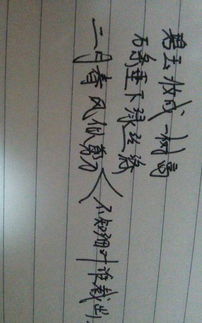 碧玉妆成一树高
万条垂下绿丝绦
二月春风似剪刀〈不知细叶谁裁出